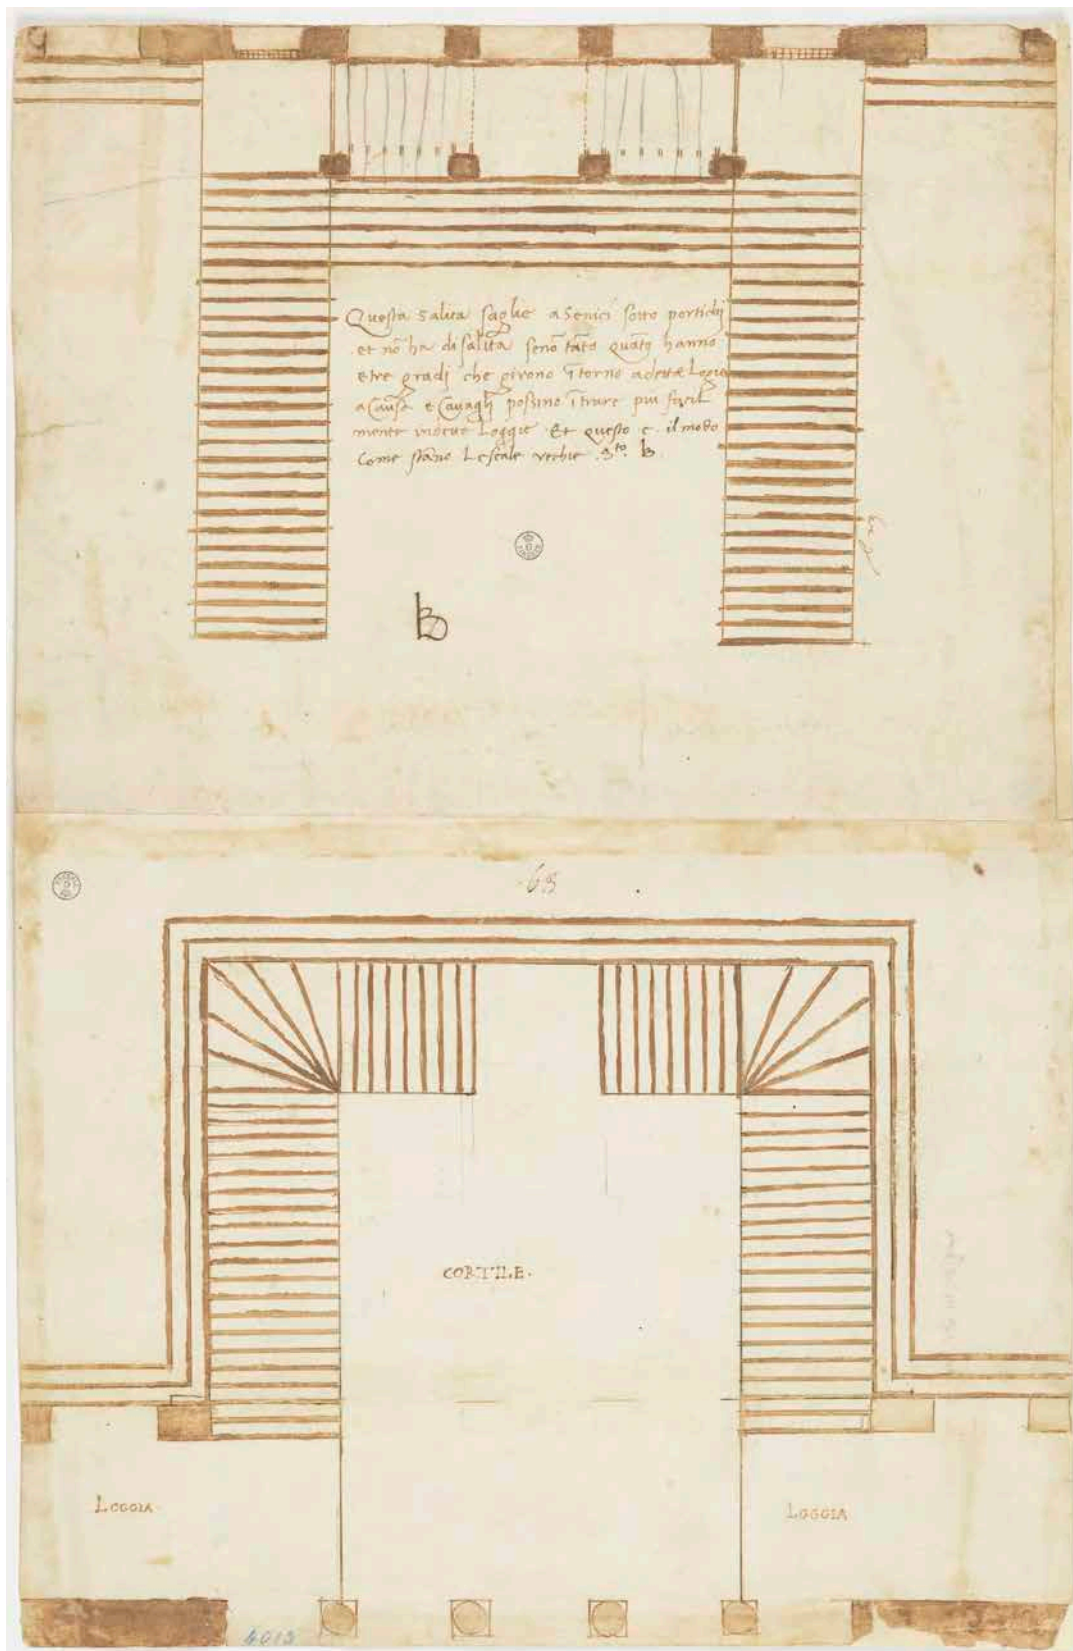 Questa salita saglie a Senici sotto portichi
et nō ha di salita senō tāto quāto hanno
e tre gradi che girono ītorno a dette Logie
a causa e Cavagli possino ītrare piu facil
mente in dette Loggie Et questo e il modo
Come stāno Le scale vechie
68
CORTILE.
LOGGIA.
LOGGIA
4019